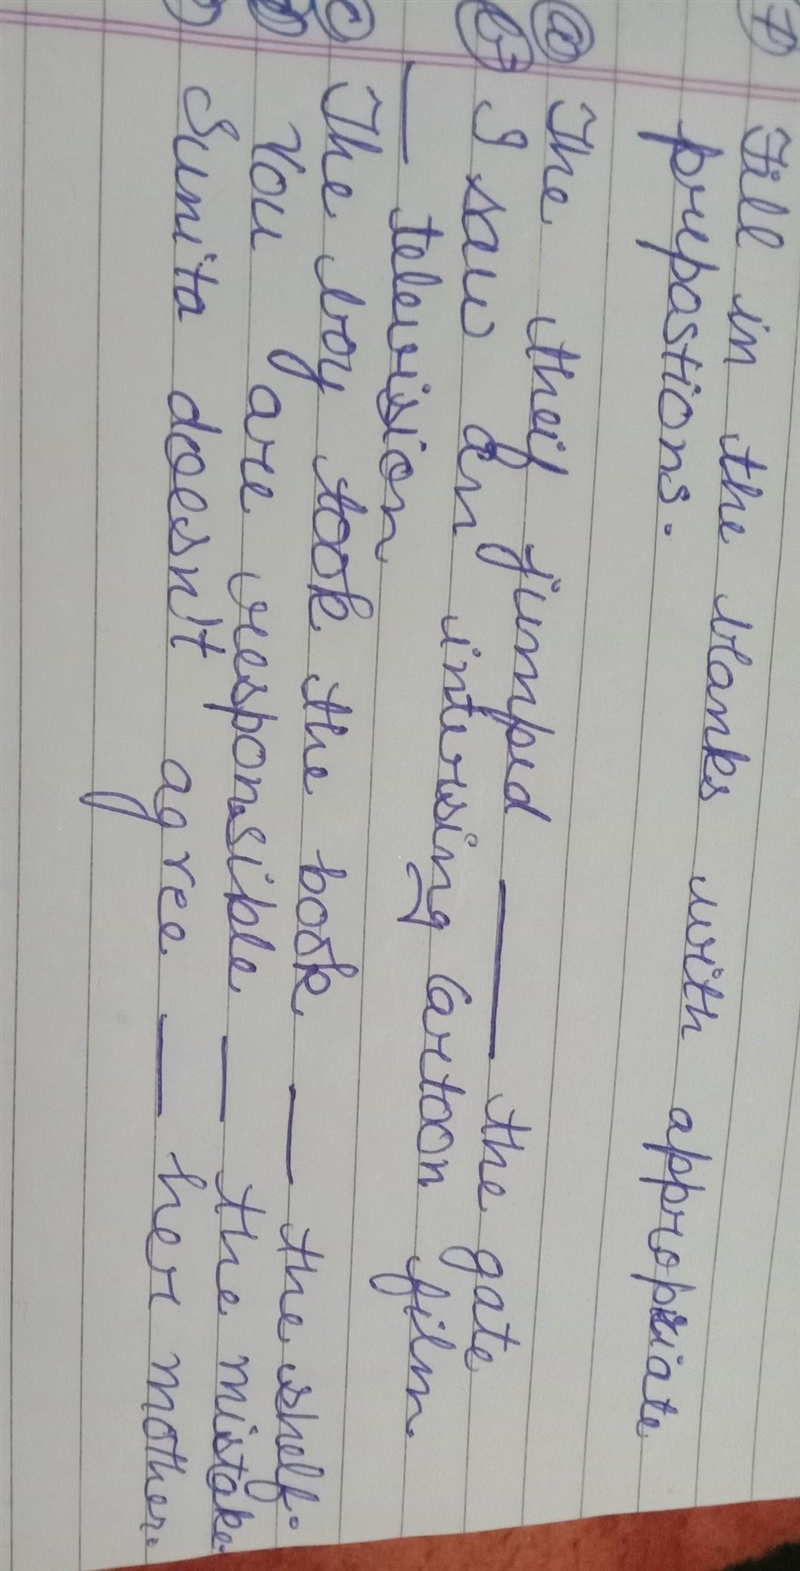 7) Fill in the blanks with appropriate
prepastions.
a) The theif jumped ___ the gate
b) I saw an intersing Cartoon film
___ television
c) The boy took the book ___ the shelf.
You are responsible ___ the mistake.
Sunita doesn't agree ___ her mother.